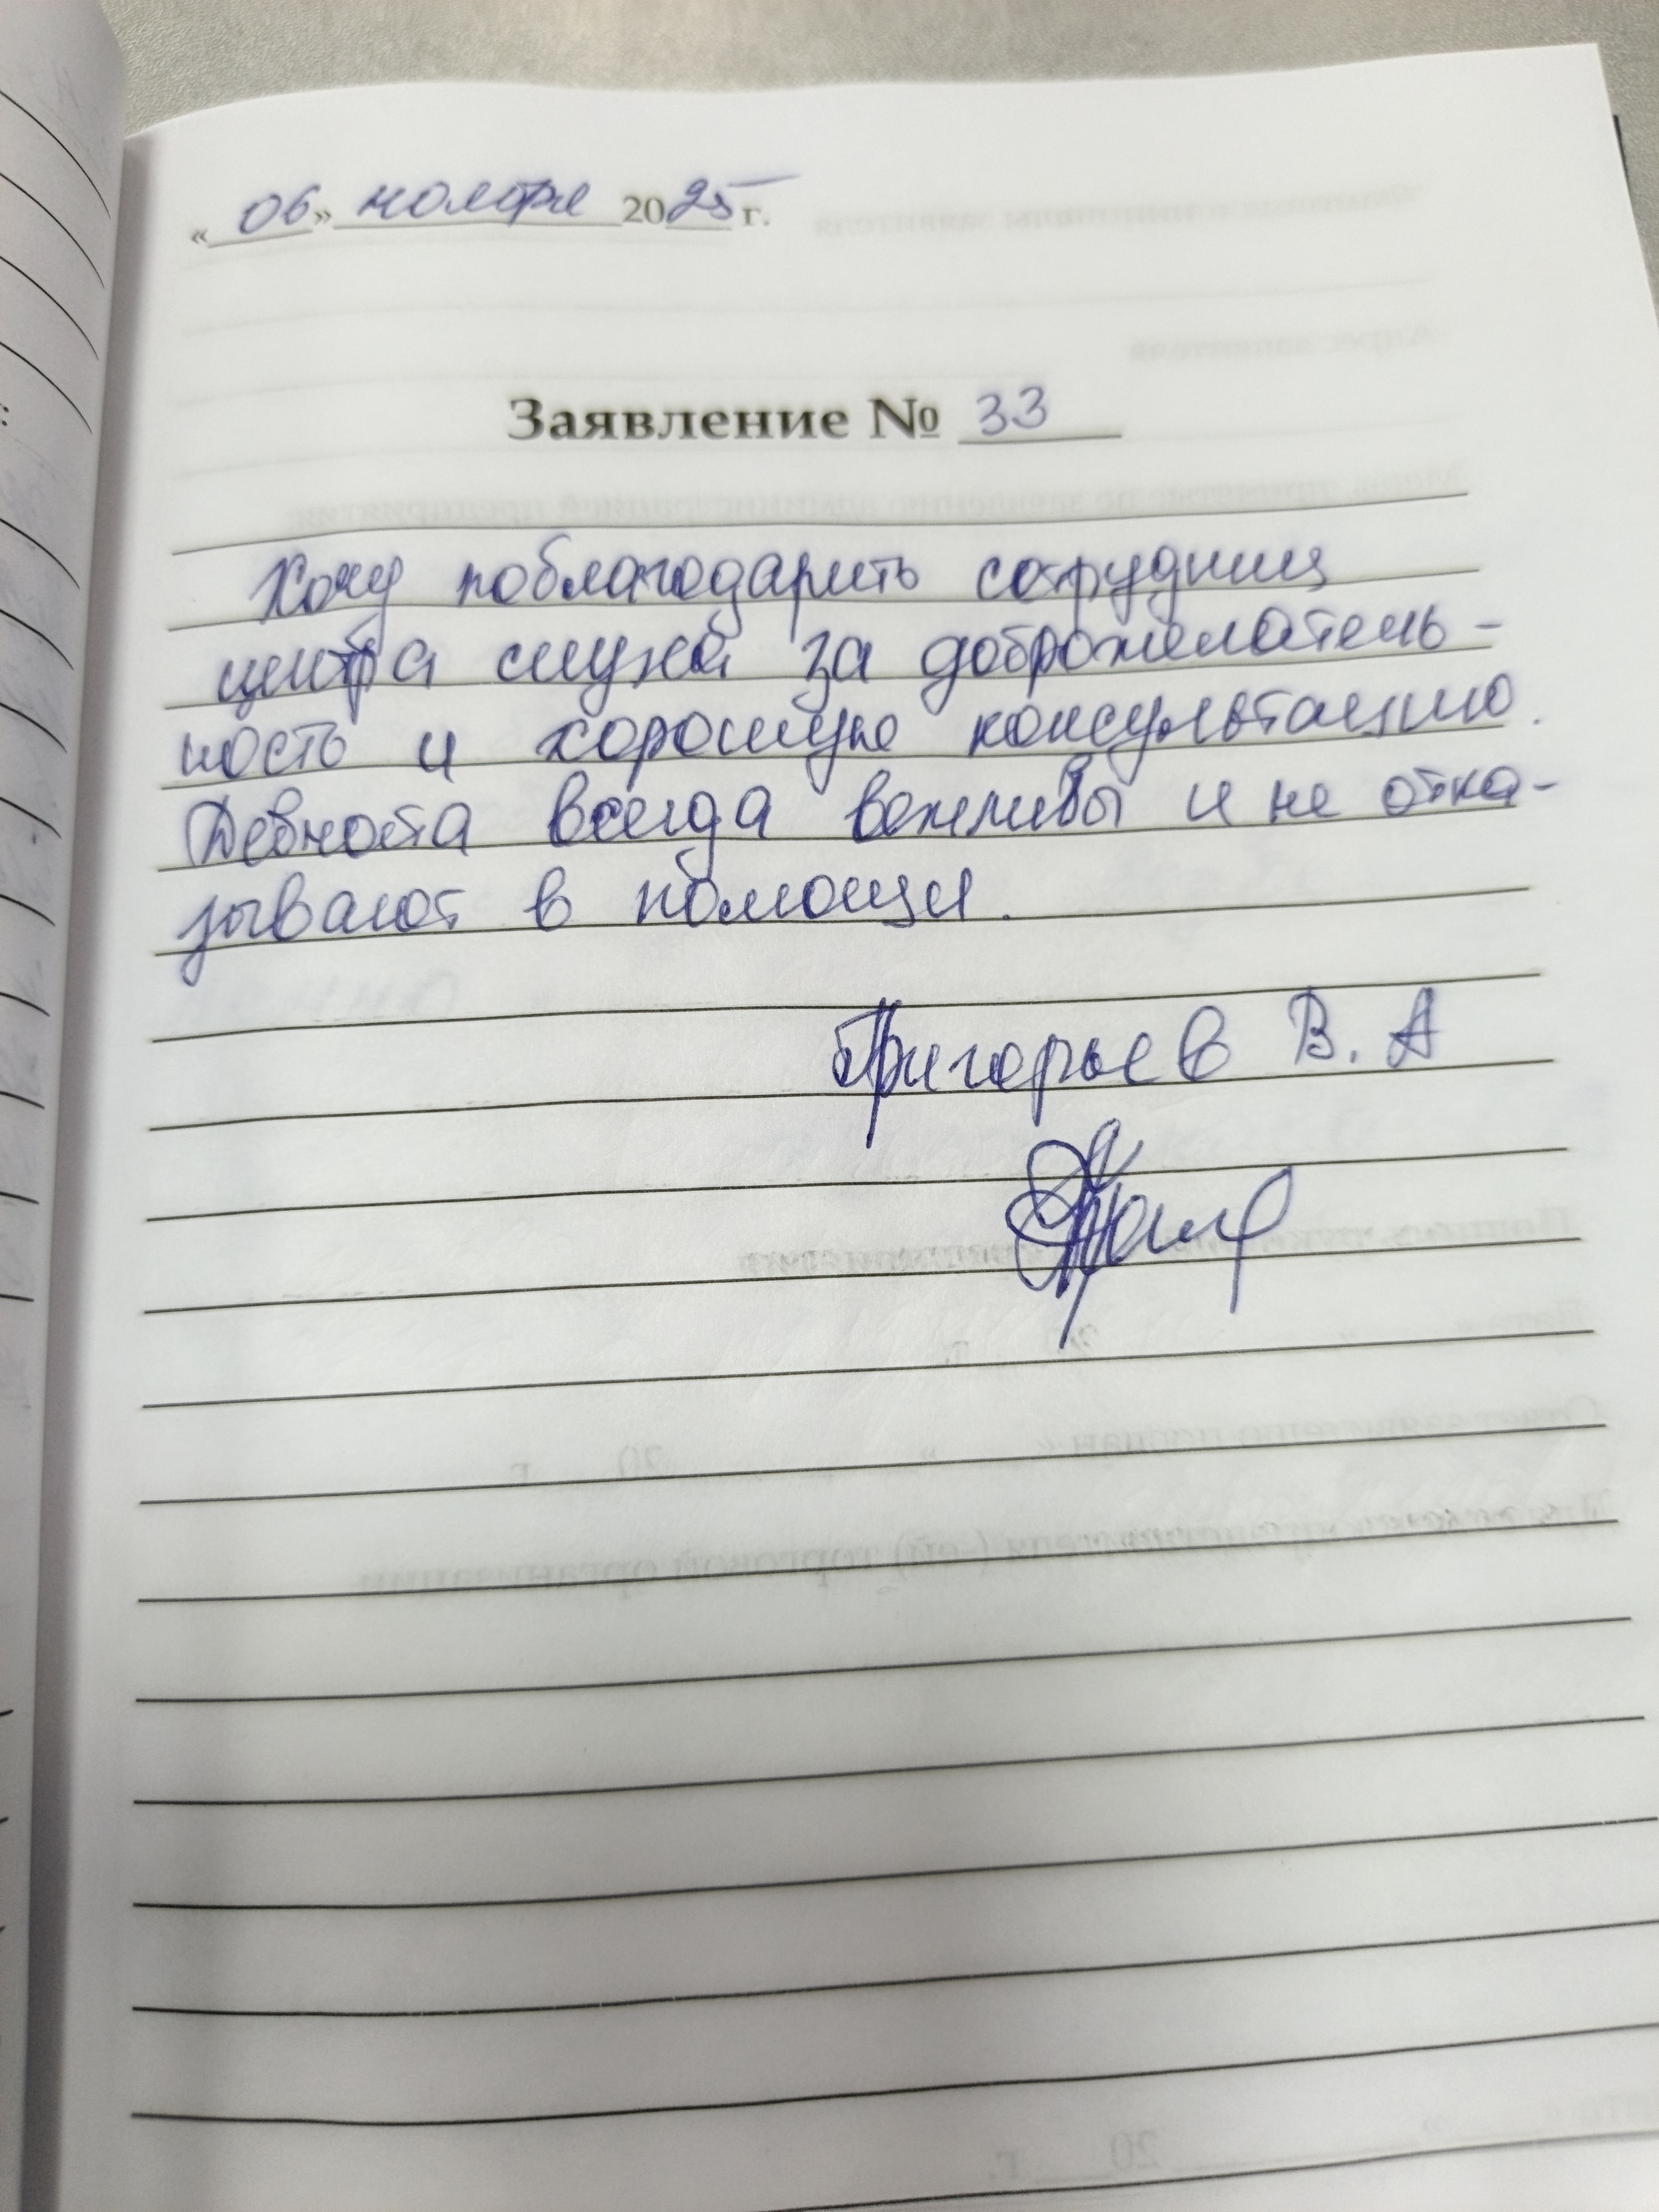 «06» ноября 2025 г.
Заявление № 33
Хочу поблагодарить сотрудниц
центра слуха за доброжелатель-
ность и хорошую консультацию.
Девчата всегда вежливы и не отка-
зывают в помощи.
Григорьев В. А